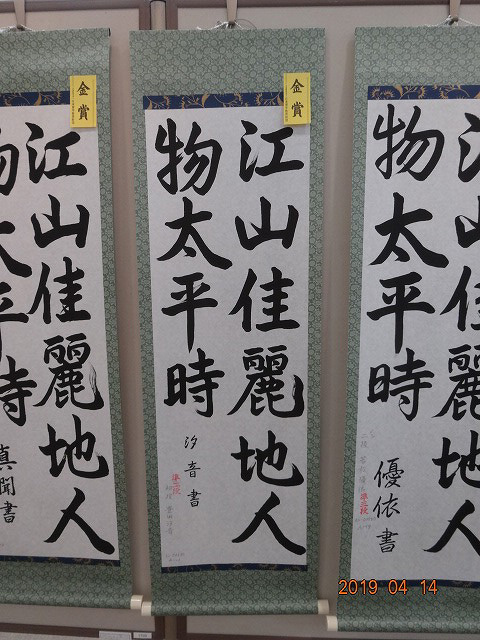 金賞
江山佳麗地人
物太平時
汐音書
準五段
金賞
江山佳麗地人
物太平時
真聞書
江山佳麗地人
物太平時
優依書
準五段
2019 04 14